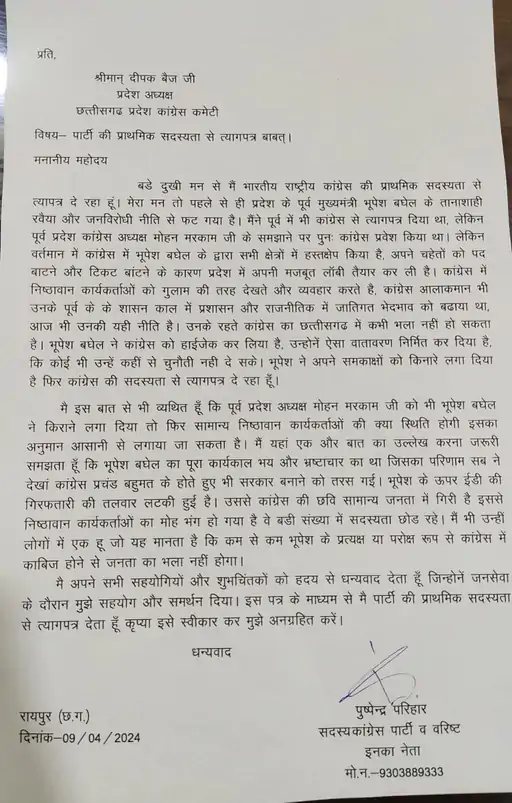 प्रति,
श्रीमान् दीपक बैज जी
प्रदेश अध्यक्ष
छत्तीसगढ प्रदेश कांग्रेस कमेटी
विषय– पार्टी की प्राथमिक सदस्यता से त्यागपत्र बाबत्।
मनानीय महोदय
बडे दुखी मन से मैं भारतीय राष्ट्रीय कांग्रेस की प्राथमिक सदस्यता से
त्यापत्र दे रहा हूं। मेरा मन तो पहले से ही प्रदेश के पूर्व मुख्यमंत्री भूपेश बघेल के तानाशाही
रवैया और जनविरोधी नीति से फट गया है। मैंने पूर्व में भी कांग्रेस से त्यागपत्र दिया था, लेकिन
पूर्व प्रदेश कांग्रेस अध्यक्ष मोहन मरकाम जी के समझाने पर पुनः कांग्रेस प्रवेश किया था। लेकिन
वर्तमान में कांग्रेस में भूपेश बघेल के द्वारा सभी क्षेत्रों में हस्तक्षेप किया है, अपने चहेतों को पद
बाटने और टिकट बांटने के कारण प्रदेश में अपनी मजबूत लॉबी तैयार कर ली है। कांग्रेस में
निष्ठावान कार्यकर्ताओं को गुलाम की तरह देखते और व्यवहार करते है, कांग्रेस आलाकमान भी
उनके पूर्व के के शासन काल में प्रशासन और राजनीतिक में जातिगत भेदभाव को बढाया था,
आज भी उनकी यही नीति है। उनके रहते कांग्रेस का छत्तीसगढ में कभी भला नही हो सकता
है। भूपेश बघेल ने कांग्रेस को हाईजेक कर लिया है, उन्होनें ऐसा वातावरण निर्मित कर दिया है,
कि कोई भी उन्हें कहीं से चुनौती नही दे सके। भूपेश ने अपने समकाक्षों को किनारे लगा दिया
है फिर कांग्रेस की सदस्यता से त्यागपत्र दे रहा हूँ।
मै इस बात से भी व्यथित हूँ कि पूर्व प्रदेश अध्यक्ष मोहन मरकाम जी को भी भूपेश बघेल
ने किराने लगा दिया तो फिर सामान्य निष्ठावान कार्यकर्ताओं की क्या स्थिति होगी इसका
अनुमान आसानी से लगाया जा सकता है। मैं यहां एक और बात का उल्लेख करना जरूरी
समझता हूँ कि भूपेश बघेल का पूरा कार्यकाल भय और भ्रष्टाचार का था जिसका परिणाम सब ने
देखां कांग्रेस प्रचंड बहुमत के होते हुए भी सरकार बनाने को तरस गई। भूपेश के ऊपर ईडी की
गिरफतारी की तलवार लटकी हुई है। उससे कांग्रेस की छवि सामान्य जनता में गिरी है इससे
निष्ठावान कार्यकर्ताओं का मोह भंग हो गया है वे बडी संख्या में सदस्यता छोड रहे। मैं भी उन्हीं
लोगों में एक हू जो यह मानता है कि कम से कम भूपेश के प्रत्यक्ष या परोक्ष रूप से कांग्रेस में
काबिज होने से जनता का भला नहीं होगा।
मै अपने सभी सहयोगियों और शुभचिंतकों को हदय से धन्यवाद देता हूँ जिन्होनें जनसेवा
के दौरान मुझे सहयोग और समर्थन दिया। इस पत्र के माध्यम से मै पार्टी की प्राथमिक सदस्यता
से त्यागपत्र देता हूँ कृप्या इसे स्वीकार कर मुझे अनग्रहित करें।
धन्यवाद
रायपुर (छ.ग.)
दिनांक–09/04/2024
पुष्पेन्द्र परिहार
सदस्यकांग्रेस पार्टी व वरिष्ट
इनका नेता
मो.न.–9303889333